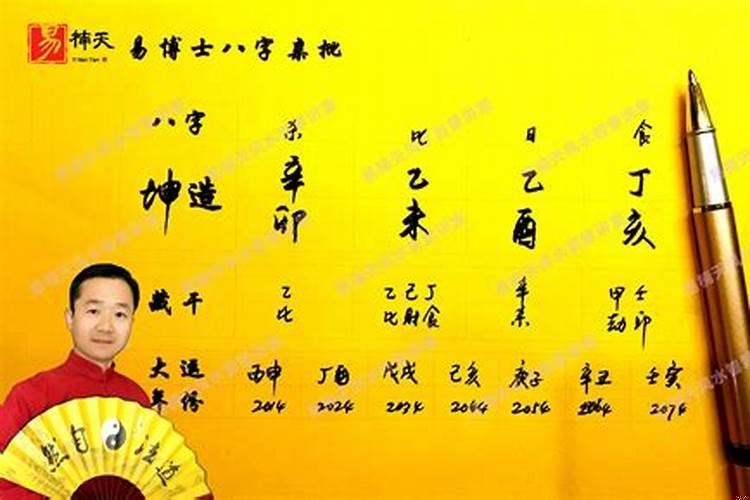 易 楠天 易博士八字案批
八字 杀 比 日 食
坤造 辛 乙 乙 丁
卯 未 酉 亥
藏干 乙 乙己丁 辛 甲壬
比 比财食 杀 劫印
大运 丙申 丁酉 戊戌 己亥 庚子 辛丑 壬寅
年份 2014 2024 2034 2044 2054 2064 2074
道法自然